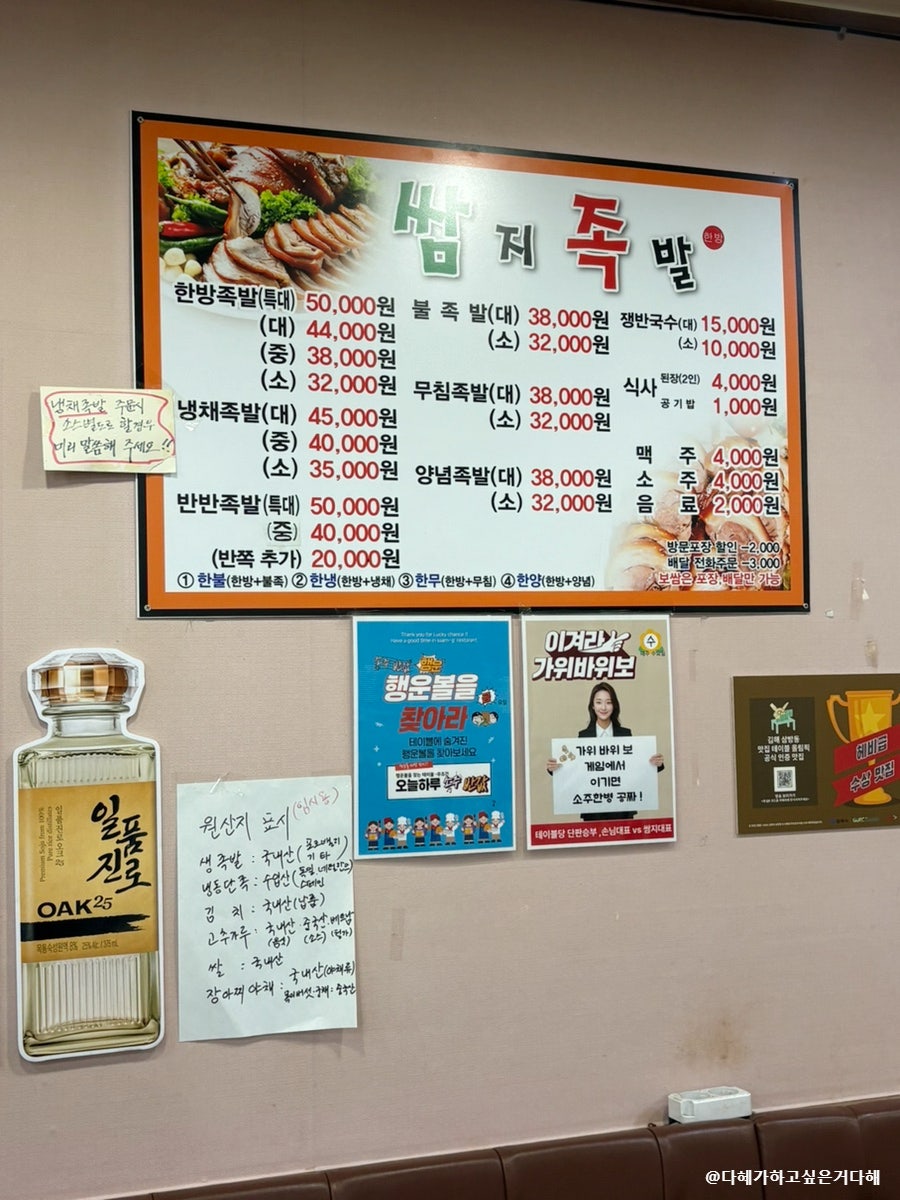 쌈지족발
한방
한방족발(특대) 50,000원
(대) 44,000원
(중) 38,000원
(소) 32,000원
냉채족발(대) 45,000원
(중) 40,000원
(소) 35,000원
반반족발(특대) 50,000원
(중) 40,000원
(반쪽 추가) 20,000원
불족발(대) 38,000원
(소) 32,000원
무침족발(대) 38,000원
(소) 32,000원
양념족발(대) 38,000원
(소) 32,000원
쟁반국수(대) 15,000원
(소) 10,000원
식사 된장(2인) 4,000원
공기밥 1,000원
맥주 4,000원
소주 4,000원
음료 2,000원
방문포장 할인 -2,000
배달 전화주문 -3,000
보쌈은 포장,배달만 가능
① 한불(한방+불족) ② 한냉(한방+냉채) ③ 한무(한방+무침) ④ 한양(한방+양념)
냉채족발 주문시
소스별도로 할경우
미리 말씀해 주세요!!
일품진로
OAK25
Premium Soju from 100%
Pure rice distillers
25% Alc. / 375 mL
원산지 표시(임시용)
생족발 : 국내산
기타
냉동단족 : 수입산(독일
스페인
김치 : 국내산(납품)
고추가루 : 국내산 중국산 베트남
(소스)
쌀 : 국내산
장아찌야채 : 국내산(야채류)
중국산
Thank you for Lucky chance !!
행운
행운볼을
찾아라
테이블에 숨겨진
행운볼을 찾아보세요
오늘하루
이겨라
가위바위보
가위 바위 보
게임에서
이기면
소주한병 공짜!
테이블당 단판승부, 손님대표 vs 쌈지대표
김해 삼방동
맛집 테이블 올림픽
공식 인증 맛집
헤비급
수상 맛집
@다헤가하고싶은거다해